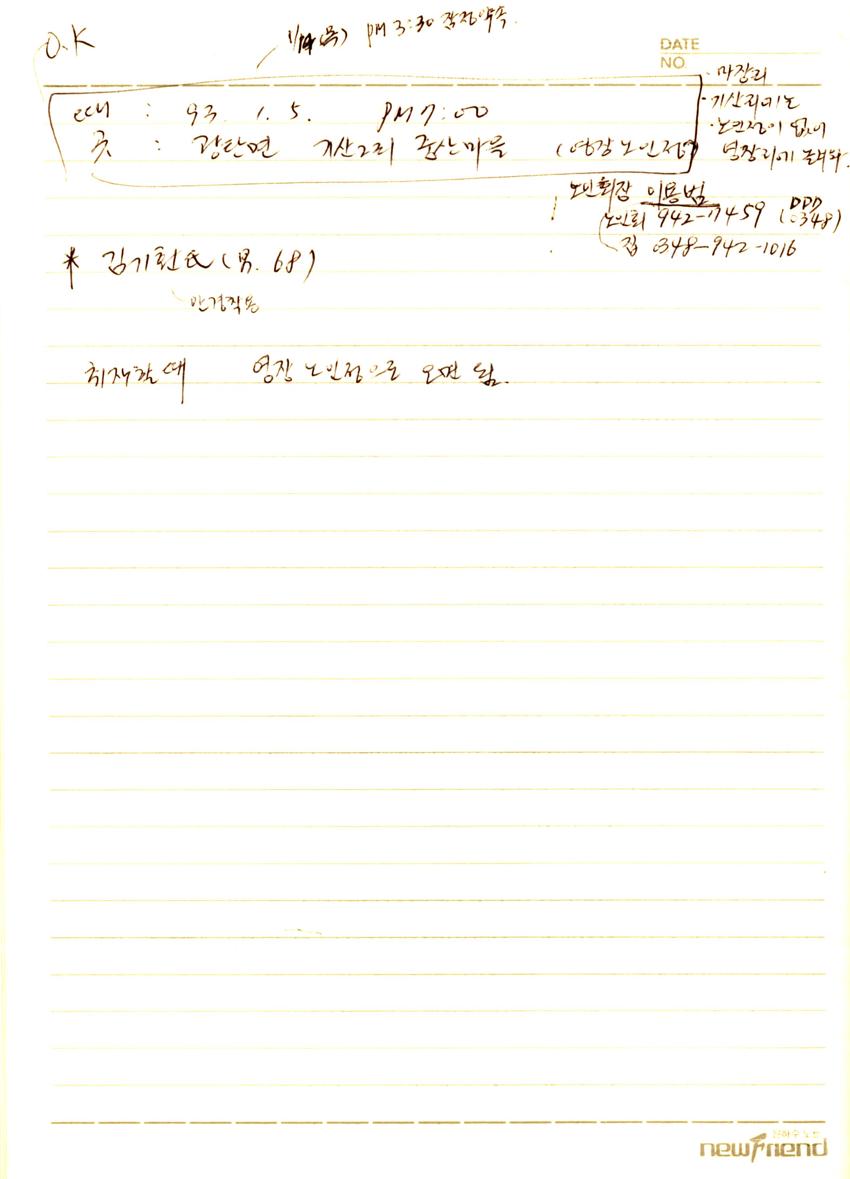 O.K
1/14(목) PM 3:30 잠정약속.
DATE
NO.
때 : 93. 1. 5. PM 7:00
곳 : 광탄면 기산2리 중산마을 (영장노인정)
· 마장리
· 기산리에는
· 노인정이 없어
영장리에
노인회장 이용범
노인회 942-7459 (DDD 0348)
집 0348-942-1016
* 김기현氏 (男. 68)
안경착용
취재할 때 영장 노인정으로 오면 됨.
newFriend